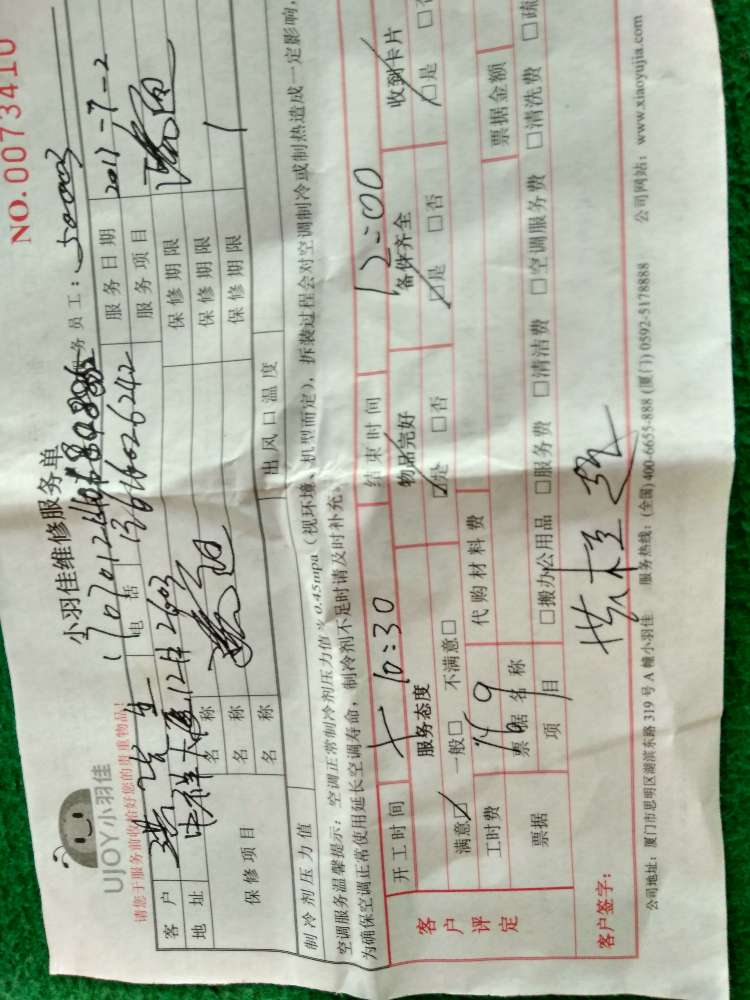 NO.0073410
UJOY小羽佳
小羽佳维修服务单
请您于服务前收拾好您的贵重物品!
务员工: 50003
客户
电话 13616026242
服务日期 2017-7-2
地址 中祥大厦12月2603
服务项目
保修项目
名称
保修期限
名称
保修期限
名称
保修期限 1
制冷剂压力值
出风口温度
空调服务温馨提示:空调正常制冷剂压力值为0.45mpa(视环境、机型而定),拆装过程会对空调制冷或制热造成一定影响,
为确保空调正常使用延长空调寿命,制冷剂不足时请及时补充。
开工时间 10:30 结束时间 12:00
客户评定
服务态度 物品完好 备件齐全 收到卡片
满意☑ 一般□ 不满意□ ☑是 □否 ☑是 □否 ☑是 □否
工时费 代购材料费
票据 票据名称 票据金额
项目 □搬办公用品 □服务费 □清洁费 □空调服务费 □清洗费 □疏
客户签字:
公司地址:厦门市思明区湖滨东路319号A幢小羽佳 服务热线:(全国)400-6655-888(厦门)0592-5178888 公司网站:www.xiaoyujia.com